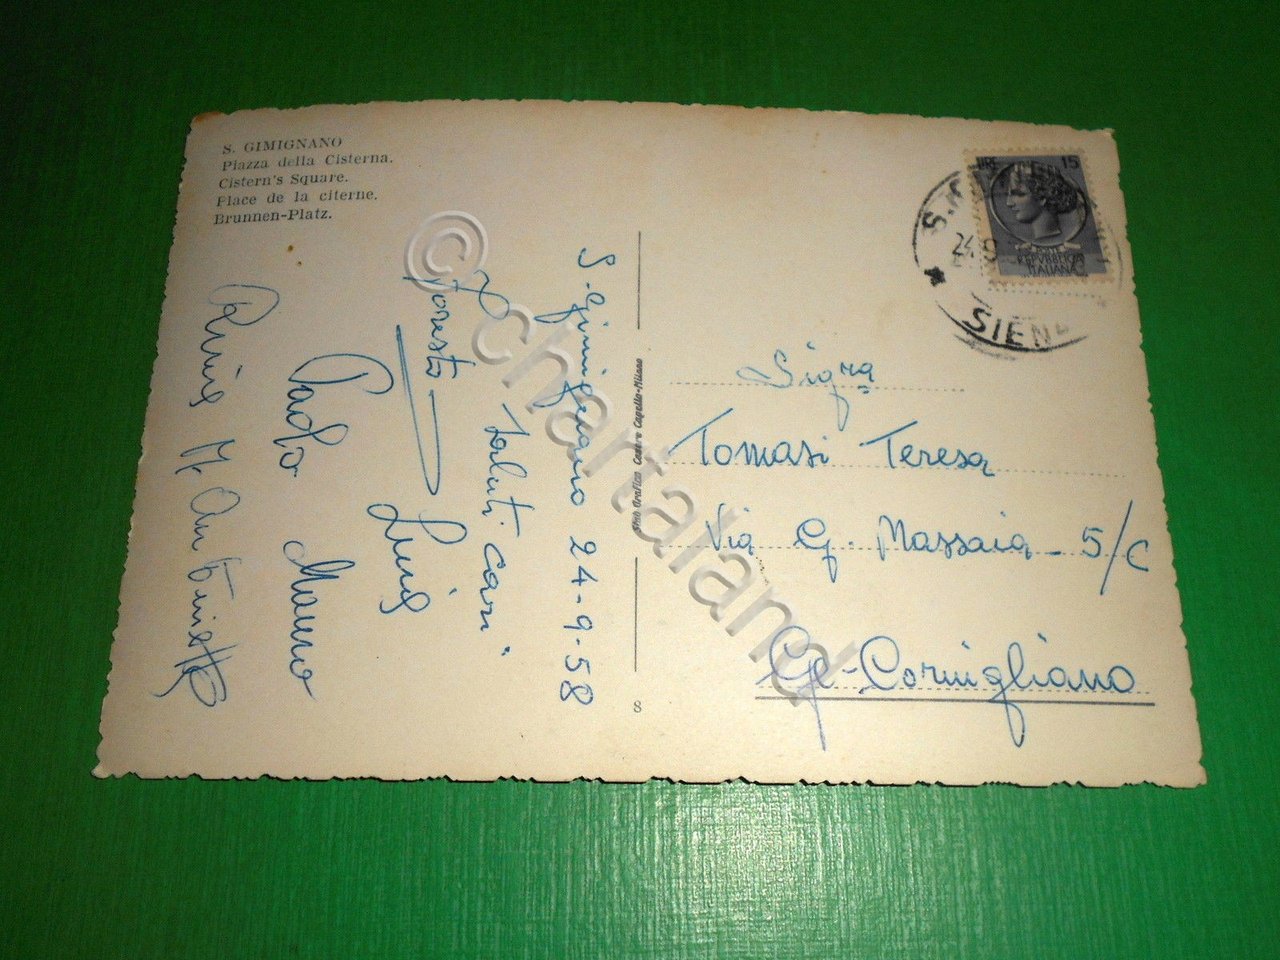 S. GIMIGNANO
Piazza della Cisterna.
Cistern's Square.
Place de la citerne.
Brunnen-Platz.
S. Gimignano 24-9-58
saluti cari
Luis
Paolo Mauro
Stab. Grafico Cesare Capello-Milano
8
LIRE 15
REPVBBLICA
ITALIANA
24.9
SIENA
Sigra
Tomasi Teresa
Via G. Massaia - 5/C
Ge-Cornigliano
© chartaland